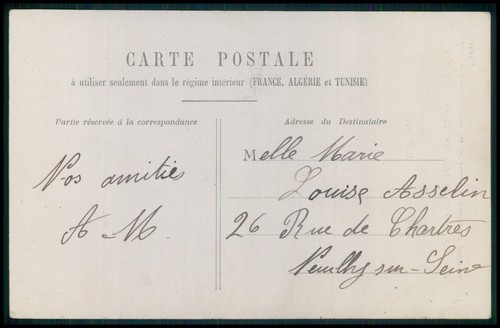 CARTE POSTALE
à utiliser seulement dans le régime intérieur (FRANCE, ALGÉRIE et TUNISIE)
Partie réservée à la correspondance
Adresse du Destinataire
Nos amitiés
A M.
Melle Marie
Louise Asselin
26 Rue de Chartres
Neuilly sur-Seine